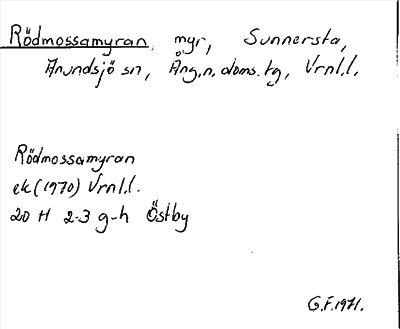 Rödmossamyran, myr, Sunnersta,
Anundsjö sn, Ång.n.doms.tg, Vrnl.l.
Rödmossamyran
ek (1970) Vrnl.l.
20 H 2-3 g-h Östby
G.F. 1971.